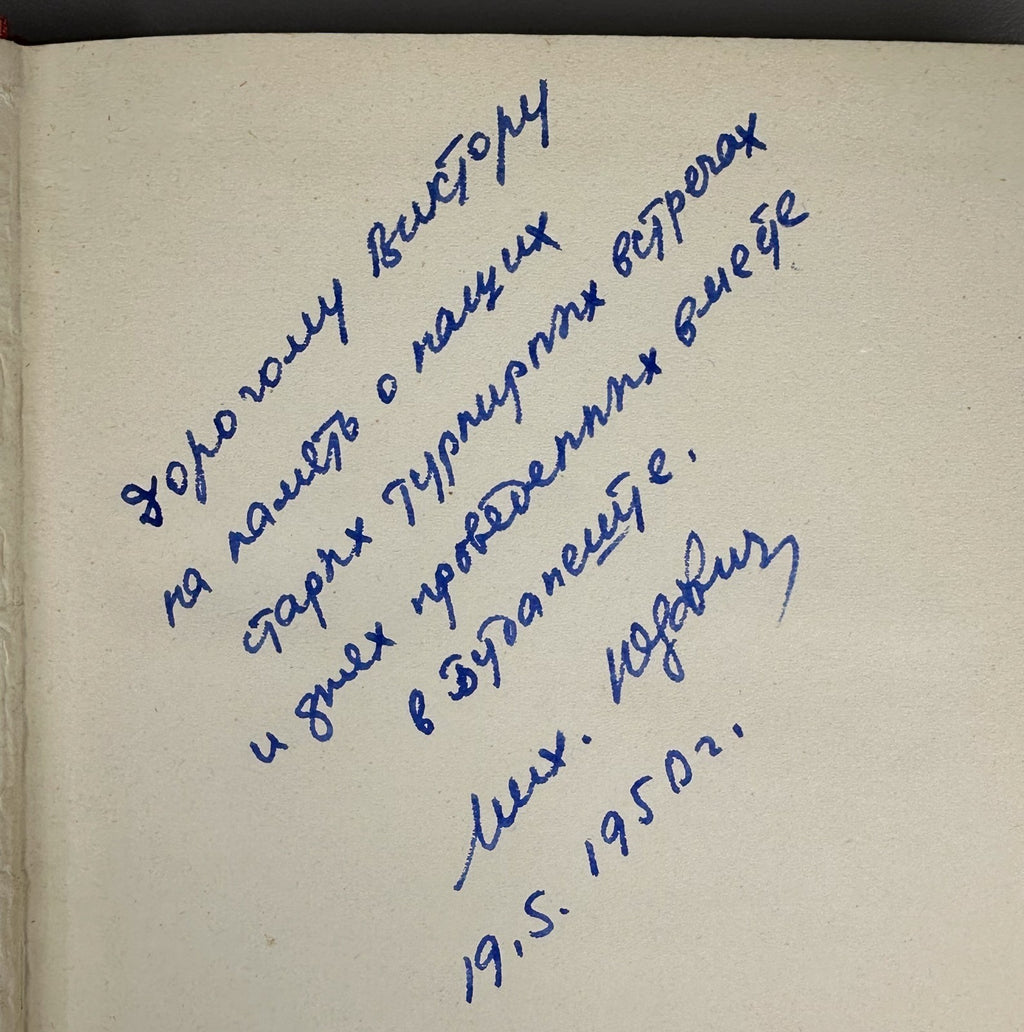 Дорогому Виктору
на память о наших
старых турнирных встречах
и днях проведенных вместе
в Будапеште.
Мих. Юдович
19.5.1950 г.